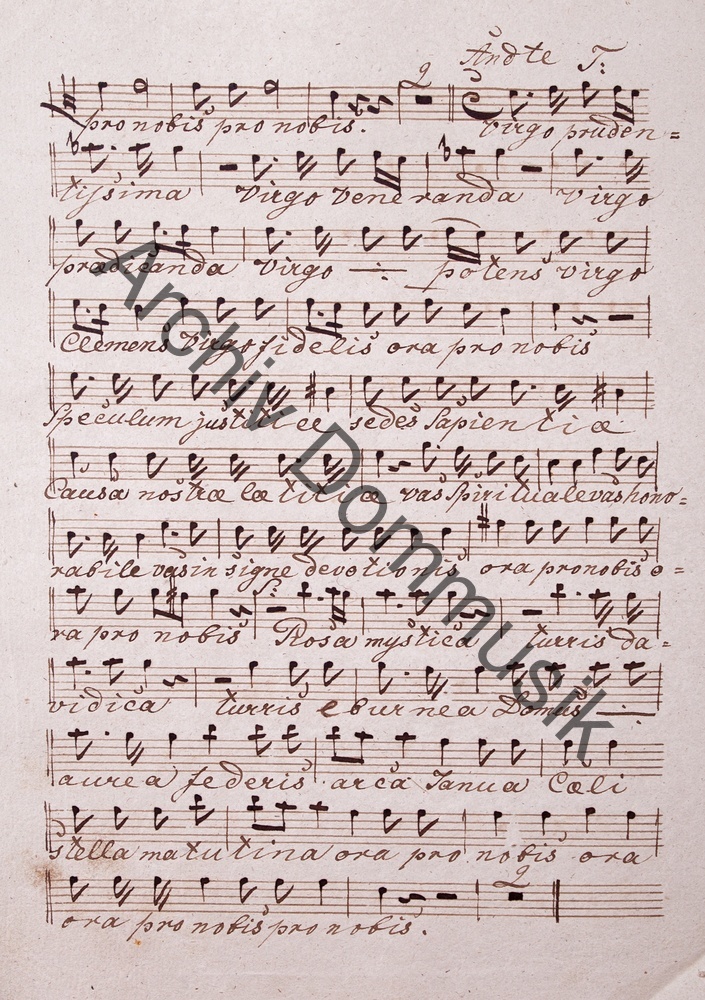 2 Andte T:
pro nobis pro nobis. Virgo pruden=
tissima Virgo Veneranda Virgo
prædicanda Virgo —:— potens Virgo
Clemens Virgo fidelis ora pro nobis
Speculum justitiæ sedes Sapientiæ
Causa nostræ lætitiæ vas Spirituale vas hono=
rabile vas insigne devotionis ora pro nobis o=
ra pro nobis Rosa mystica turris da=
vidica turris eburnea Domus
aurea federis arca Ianua Cæli
stella matutina ora pro nobis ora
2
ora pro nobis pro nobis.
Archiv Dommusik